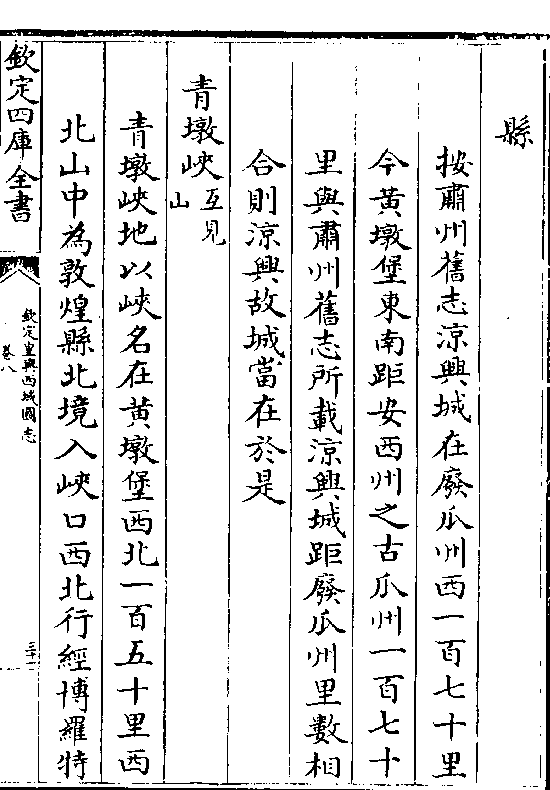 縣
按肅州舊志涼興城在廢瓜州西一百七十里
今黃墩堡東南距安西州之古瓜州一百七十
里與肅州舊志所載涼興城距廢瓜州里數相
合則涼興故城當在於是
青墩峽互見
山
青墩峽地以峽名在黃墩堡西北一百五十里西
北山中為敦煌縣北境入峽口西北行經博羅特
欽定四庫全書
欽定皇輿西域圖志
卷八
三十一